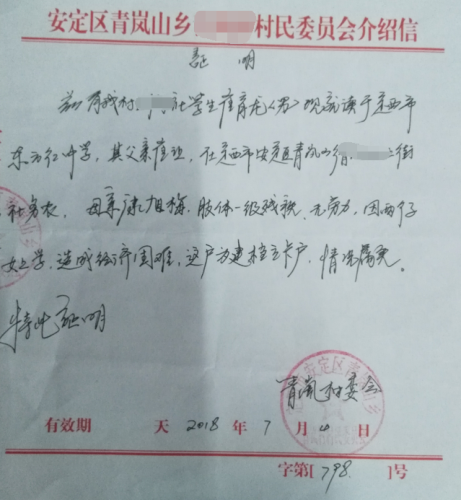 安定区青岚山乡 村民委员会介绍信
证 明
兹有我村 社学生崔育龙(男)现就读于定西市
东方红中学,其父亲崔 ,在定西市安定区青岚山 街
社务农。母亲康旭梅,肢体一级残疾,无劳力,因两仔
女上学,造成经济困难,这户为建档立卡户,情况属实。
特此证明
青岚 村委会
有效期 天 2018 年 7 月 4 日
字第[798. ]号